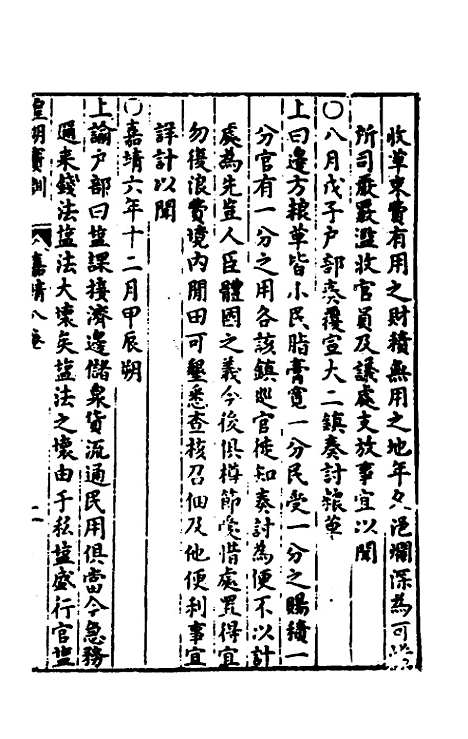 收草束費有用之財積無用之地年久浥爛深為可
所司嚴覈濫收官員及議處支放事宜以聞
〇八月戊子戶部奏覆宣大二鎮奏討粮草
上曰邊方粮草皆小民脂膏寬一分民受一分之賜積一
分官有一分之用各該鎮廵官徒知奏討為便不以計
處為先豈人臣體國之義今後俱樽節愛惜處置得宜
勿復浪費境內閒田可墾悉查核召佃及他便利事宜
詳計以聞
〇嘉靖六年十二月甲辰朔
上諭戶部曰塩課接濟邊儲泉貨流通民用俱當今急務
邇來錢法塩法大壞矣塩法之壞由于私塩盛行官塩
皇明寶訓 嘉靖八卷 二